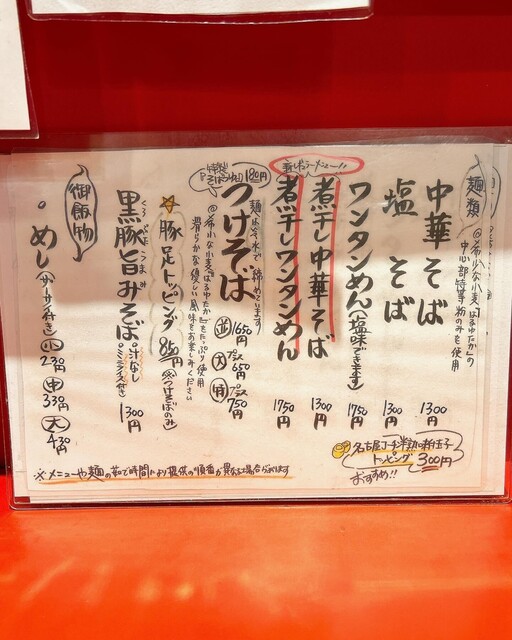 麺類
◎希少な小麦「はるゆたか」の
中心部特等粉のみを使用
中華そば 1300円
塩そば 1300円
ワンタンめん(塩味できます) 1750円
新しいラーメン!!
煮干し中華そば 1300円
煮干しワンタンめん 1750円
つけそば
麺は冷水で締めています
並 1650円
大
特
◎希少な小麦「はるゆたか」をたっぷり使用
滑らかな優しい風味をお楽しみください
豚足トッピング 850円 つけそばのみ
黒豚旨みそば 1300円
くろぶたうまみ
汁なし
ミニライス付き
御飯物
めし(ザーサイ付き)
小 230円
中 330円
大 430円
名古屋コーチン半熟味付玉子
トッピング 300円
おすすめ!!
※メニューや麺の茹で時間により提供の順番が異なる場合があります